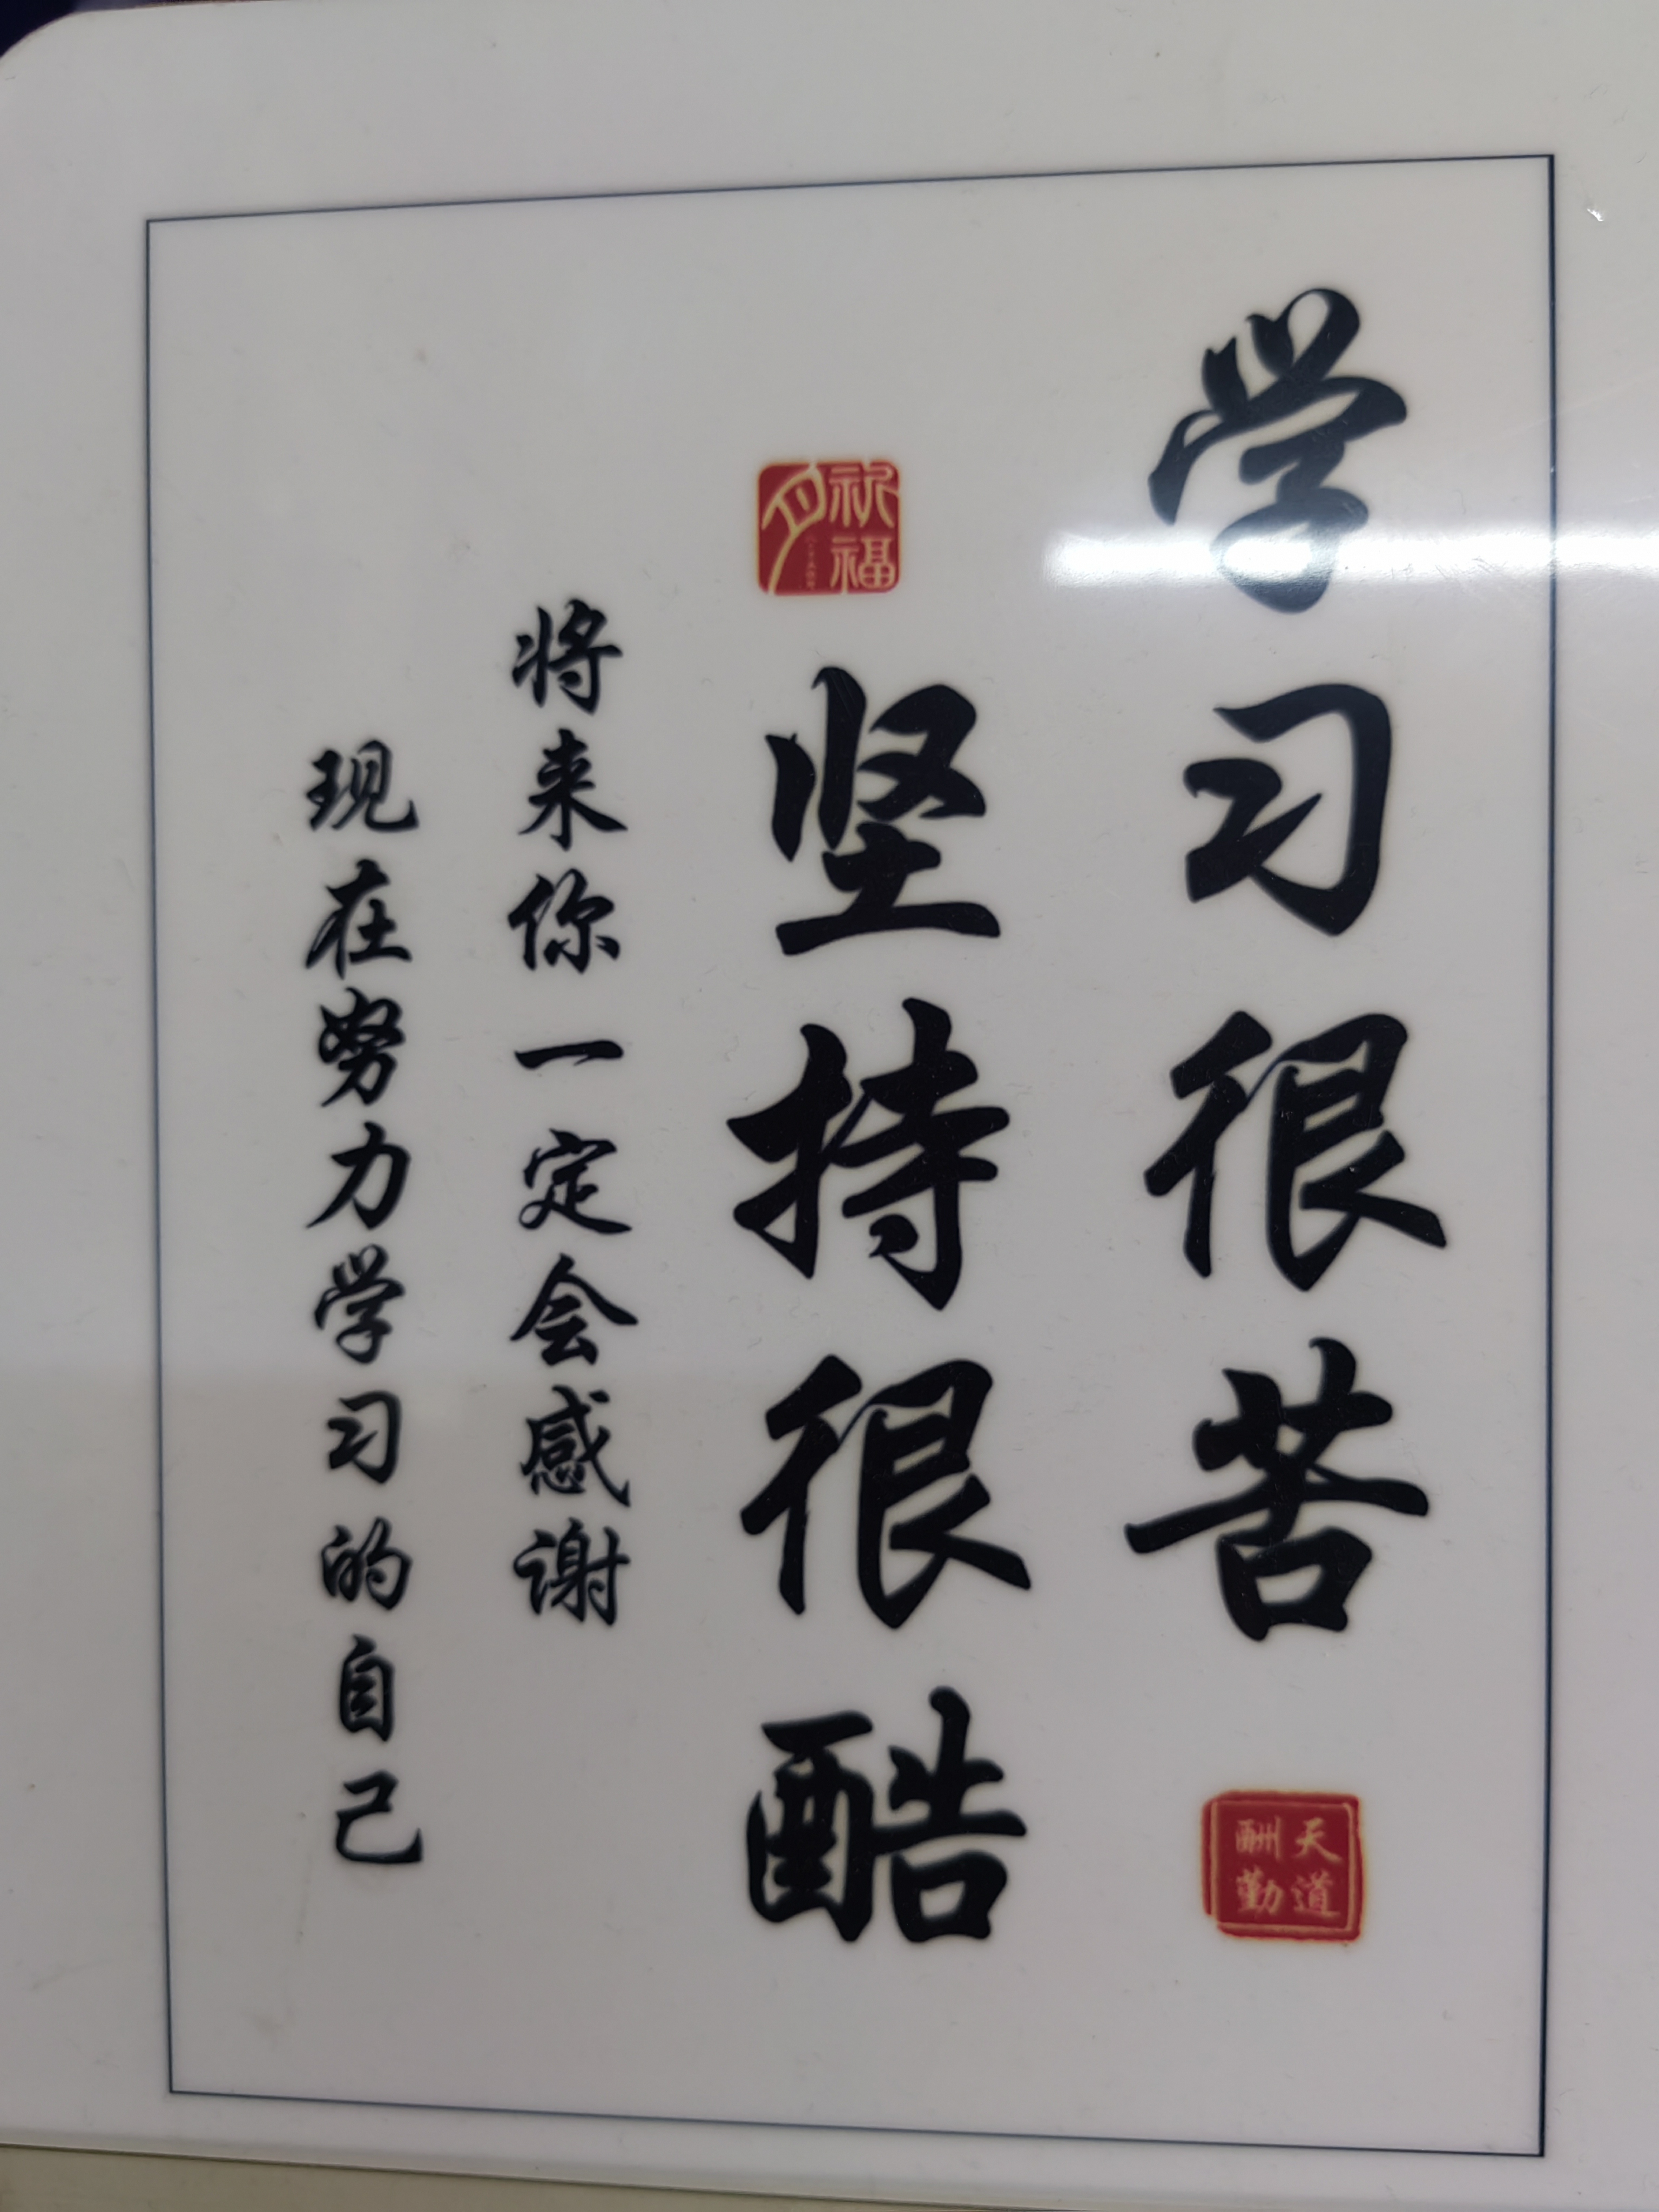 学习很苦
天道
酬勤
祝福
坚持很酷
将来你一定会感谢
现在努力学习的自己